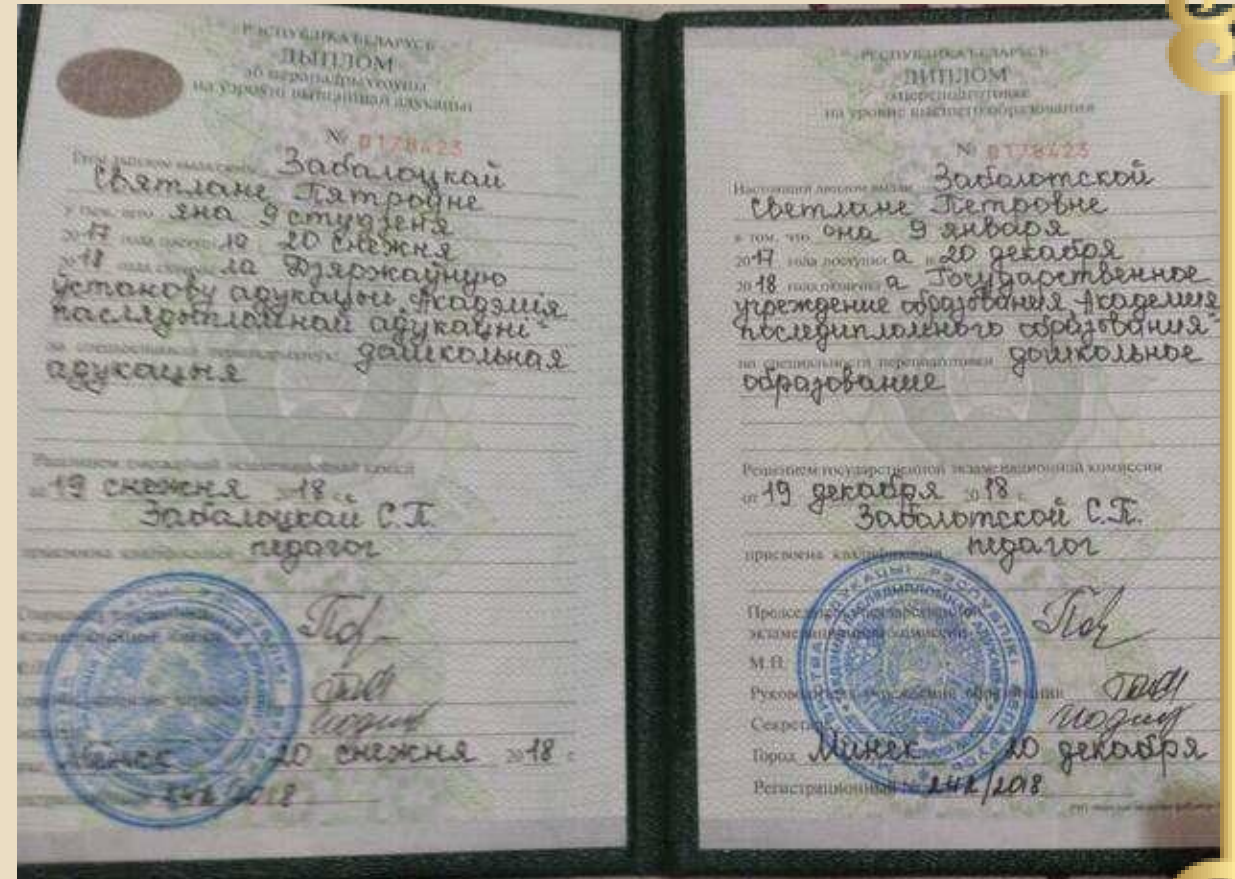 РЭСПУБЛІКА БЕЛАРУСЬ
ДЫПЛОМ
аб перападрыхтоўцы
на ўзроўні вышэйшай адукацыі
№ 0178423
Забалоцкай
Святлане Пятроўне
у тым, што яна 9 студзеня
2017 года 20 снежня
2018 года ла Дзяржаўную
ўстанову адукацыі „Акадэмія
паслядыпломнай адукацыі"
дашкольная
адукацыя
19 снежня 2018 г.
Забалоцкай С.П.
прысвоена кваліфікацыя педагог
Мінск 20 снежня 2018 г.
242/2018
РЕСПУБЛИКА БЕЛАРУСЬ
ДИПЛОМ
о переподготовке
на уровне высшего образования
№ 0178423
Настоящий диплом выдан Заболотской
Светлане Петровне
в том, что она 9 января
2017 года поступила и 20 декабря
2018 года окончила Государственное
учреждение образования „Академия
последипломного образования"
по специальности переподготовки дошкольное
образование
Решением государственной экзаменационной комиссии
от 19 декабря 2018 г.
Заболотской С.П.
присвоена квалификация педагог
Председатель государственной
экзаменационной комиссии
М.П.
Руководитель учреждения образования
Секретарь
Город Минск 20 декабря
Регистрационный № 242/2018